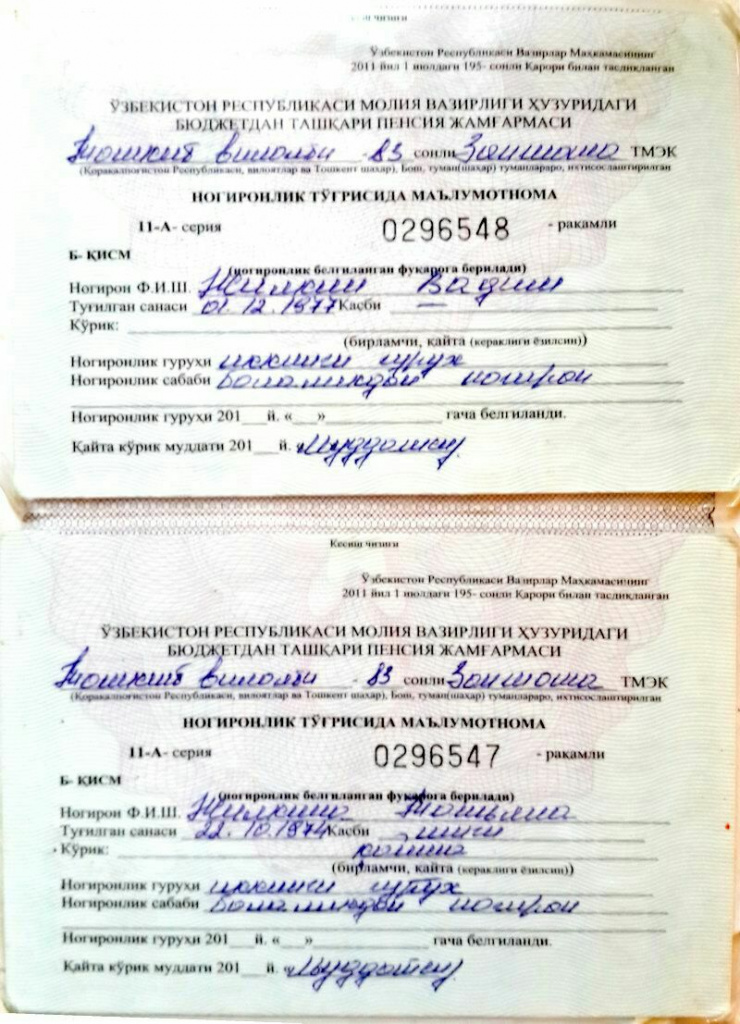 чизиғи
Ўзбекистон Республикаси Вазирлар Маҳкамасининг
2011 йил 1 июлдаги 195- сонли Қарори билан тасдиқланган
ЎЗБЕКИСТОН РЕСПУБЛИКАСИ МОЛИЯ ВАЗИРЛИГИ ҲУЗУРИДАГИ
БЮДЖЕТДАН ТАШҚАРИ ПЕНСИЯ ЖАМҒАРМАСИ
Тошкент вилояти - 83 сонли ТМЭК
(Қорақалпоғистон Республикаси, вилоятлар ва Тошкент шаҳар), Бош, туман(шаҳар) туманлараро, ихтисослаштирилган
НОГИРОНЛИК ТЎҒРИСИДА МАЪЛУМОТНОМА
11-А- серия 0296548 - рақамли
Б- ҚИСМ
(ногиронлик белгиланган фуқарога берилади)
Ногирон Ф.И.Ш. Жилкин Вадим
Туғилган санаси 01.12.1977 Касби —
Кўрик:
(бирламчи, қайта (кераклиги ёзилсин))
Ногиронлик гуруҳи иккинчи гуруҳ
Ногиронлик сабаби Болаликдан ногирон
Ногиронлик гуруҳи 201___й. «___»____________ гача белгиланди.
Қайта кўрик муддати 201___й. Муддатсиз
Кесиш чизиғи
Ўзбекистон Республикаси Вазирлар Маҳкамасининг
2011 йил 1 июлдаги 195- сонли Қарори билан тасдиқланган
ЎЗБЕКИСТОН РЕСПУБЛИКАСИ МОЛИЯ ВАЗИРЛИГИ ҲУЗУРИДАГИ
БЮДЖЕТДАН ТАШҚАРИ ПЕНСИЯ ЖАМҒАРМАСИ
Тошкент вилояти - 83 сонли ТМЭК
(Қорақалпоғистон Республикаси, вилоятлар ва Тошкент шаҳар), Бош, туман(шаҳар) туманлараро, ихтисослаштирилган
НОГИРОНЛИК ТЎҒРИСИДА МАЪЛУМОТНОМА
11-А- серия 0296547 - рақамли
Б- ҚИСМ
(ногиронлик белгиланган фуқарога берилади)
Ногирон Ф.И.Ш. Жилкина Татьяна
Туғилган санаси 22.10.1974 Касби
Кўрик: қайта
(бирламчи, қайта (кераклиги ёзилсин))
Ногиронлик гуруҳи иккинчи гуруҳ
Ногиронлик сабаби Болаликдан ногирон
Ногиронлик гуруҳи 201___й. «___»____________ гача белгиланди.
Қайта кўрик муддати 201___й. Муддатсиз